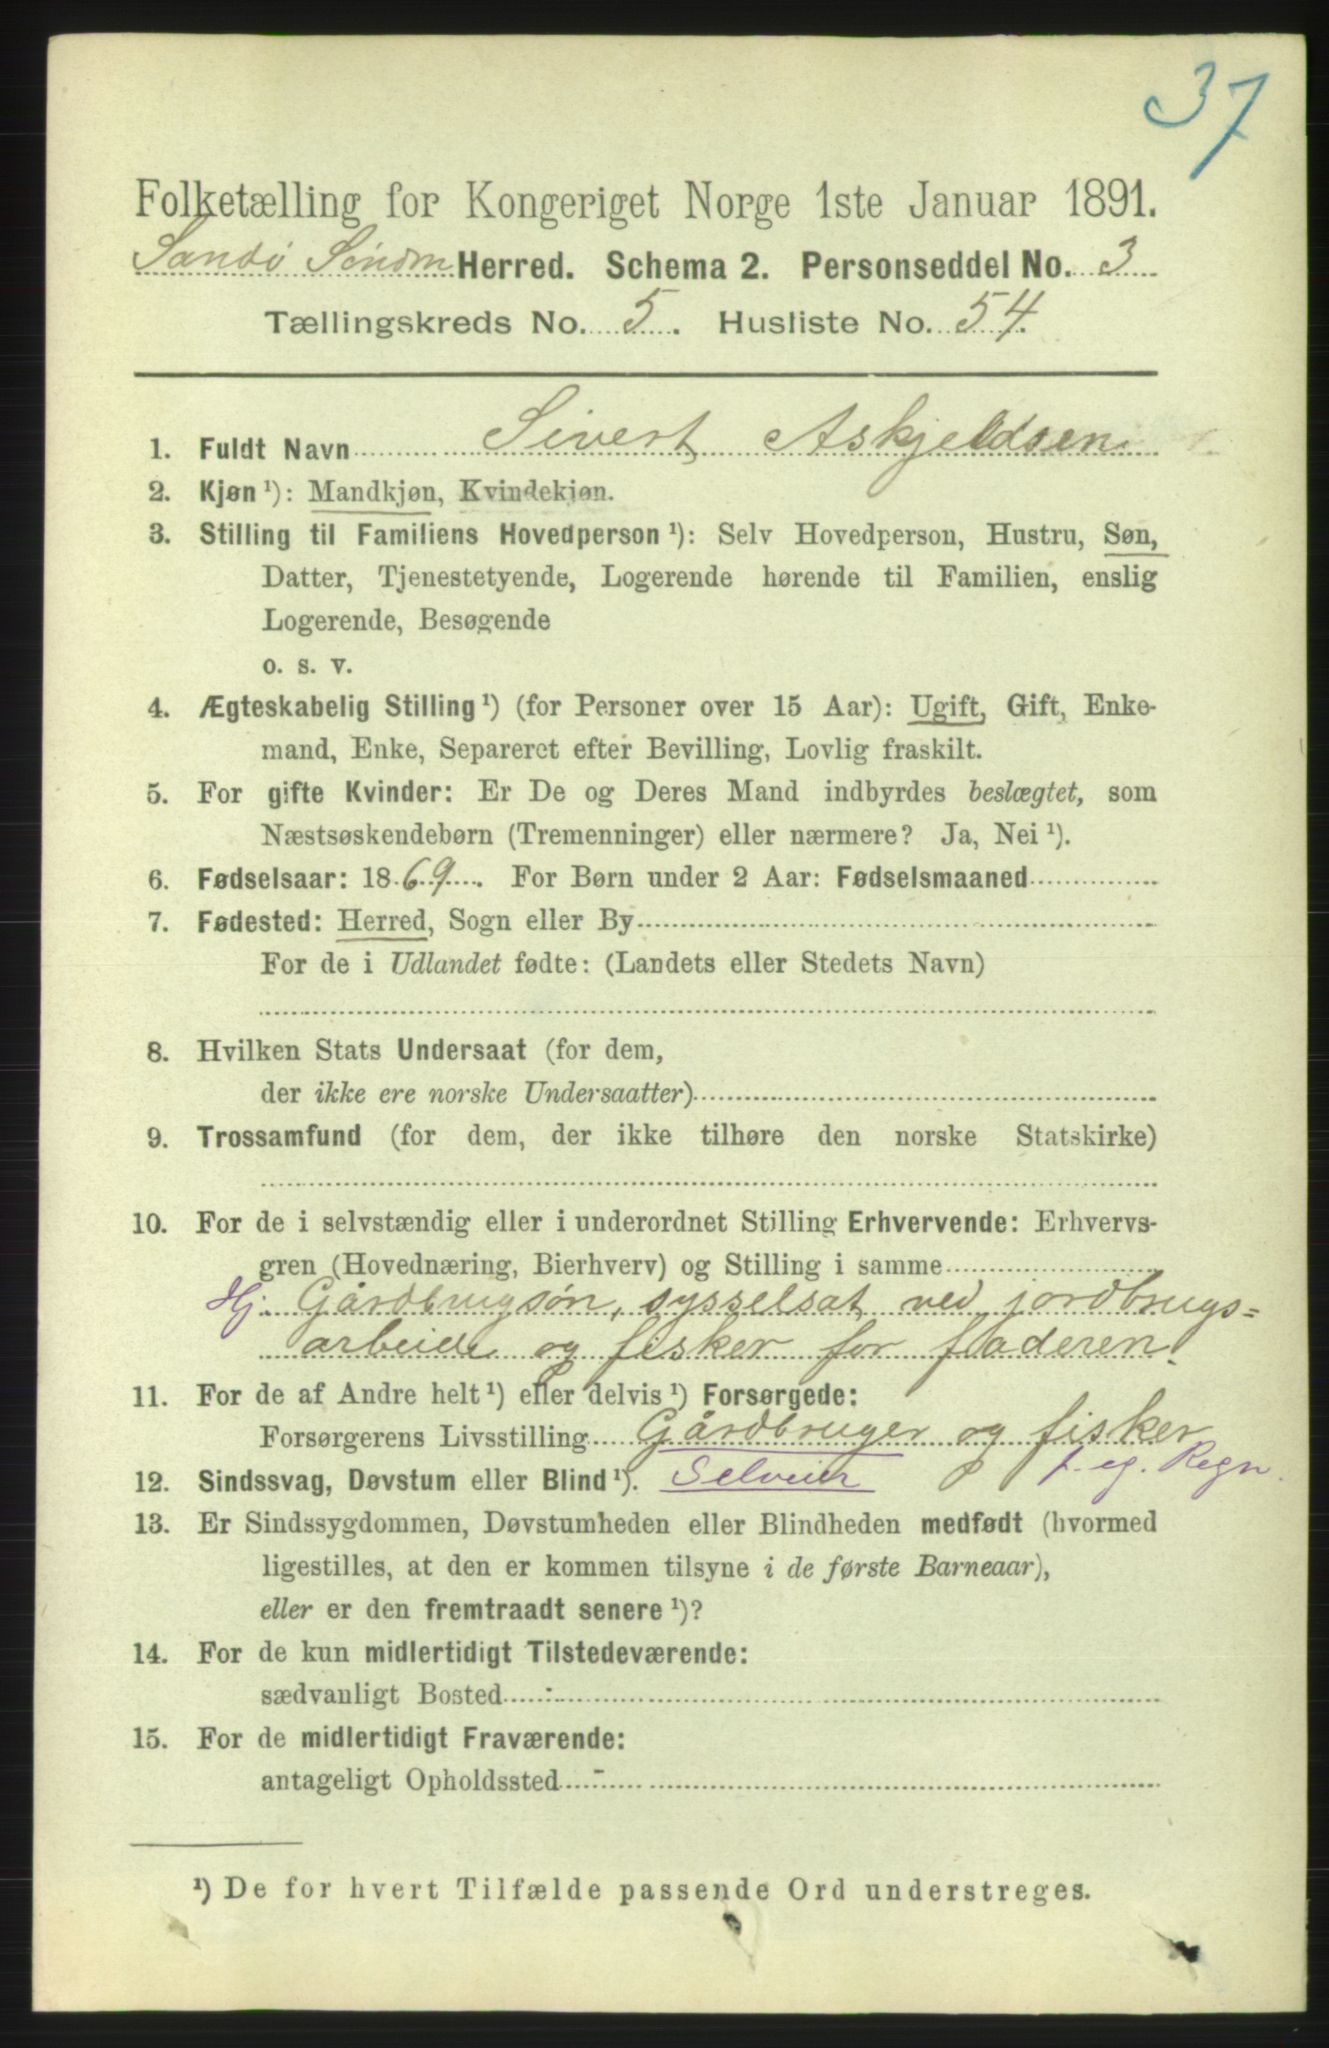 37
Folketælling for Kongeriget Norge 1ste Januar 1891.
Sandö Söndm Herred. Schema 2. Personseddel No. 3
Tællingskreds No. 5. Husliste No. 54.
1. Fuldt Navn Sivert Askjeldsen
2. Kjøn ¹): Mandkjøn, Kvindekjøn.
3. Stilling til Familiens Hovedperson ¹): Selv Hovedperson, Hustru, Søn,
Datter, Tjenestetyende, Logerende hørende til Familien, enslig
Logerende, Besøgende
o. s. v.
4. Ægteskabelig Stilling ¹) (for Personer over 15 Aar): Ugift, Gift, Enke-
mand, Enke, Separeret efter Bevilling, Lovlig fraskilt.
5. For gifte Kvinder: Er De og Deres Mand indbyrdes beslægtet, som
Næstsøskendebørn (Tremenninger) eller nærmere? Ja, Nei ¹).
6. Fødselsaar: 1869. For Børn under 2 Aar: Fødselsmaaned
7. Fødested: Herred, Sogn eller By
For de i Udlandet fødte: (Landets eller Stedets Navn)
8. Hvilken Stats Undersaat (for dem,
der ikke ere norske Undersaatter)
9. Trossamfund (for dem, der ikke tilhøre den norske Statskirke)
10. For de i selvstændig eller i underordnet Stilling Erhvervende: Erhvervs-
gren (Hovednæring, Bierhverv) og Stilling i samme
Hj. Gårdbrugsøn, sysselsat ved jordbrugs=
arbeide og fisker for faderen.
11. For de af Andre helt ¹) eller delvis ¹) Forsørgede:
Forsørgerens Livsstilling Gårdbruger og fisker
12. Sindssvag, Døvstum eller Blind ¹). Selveier f. eg. Regn.
13. Er Sindssygdommen, Døvstumheden eller Blindheden medfødt (hvormed
ligestilles, at den er kommen tilsyne i de første Barneaar),
eller er den fremtraadt senere ¹)?
14. For de kun midlertidigt Tilstedeværende:
sædvanligt Bosted
15. For de midlertidigt Fraværende:
antageligt Opholdssted
¹) De for hvert Tilfælde passende Ord understreges.